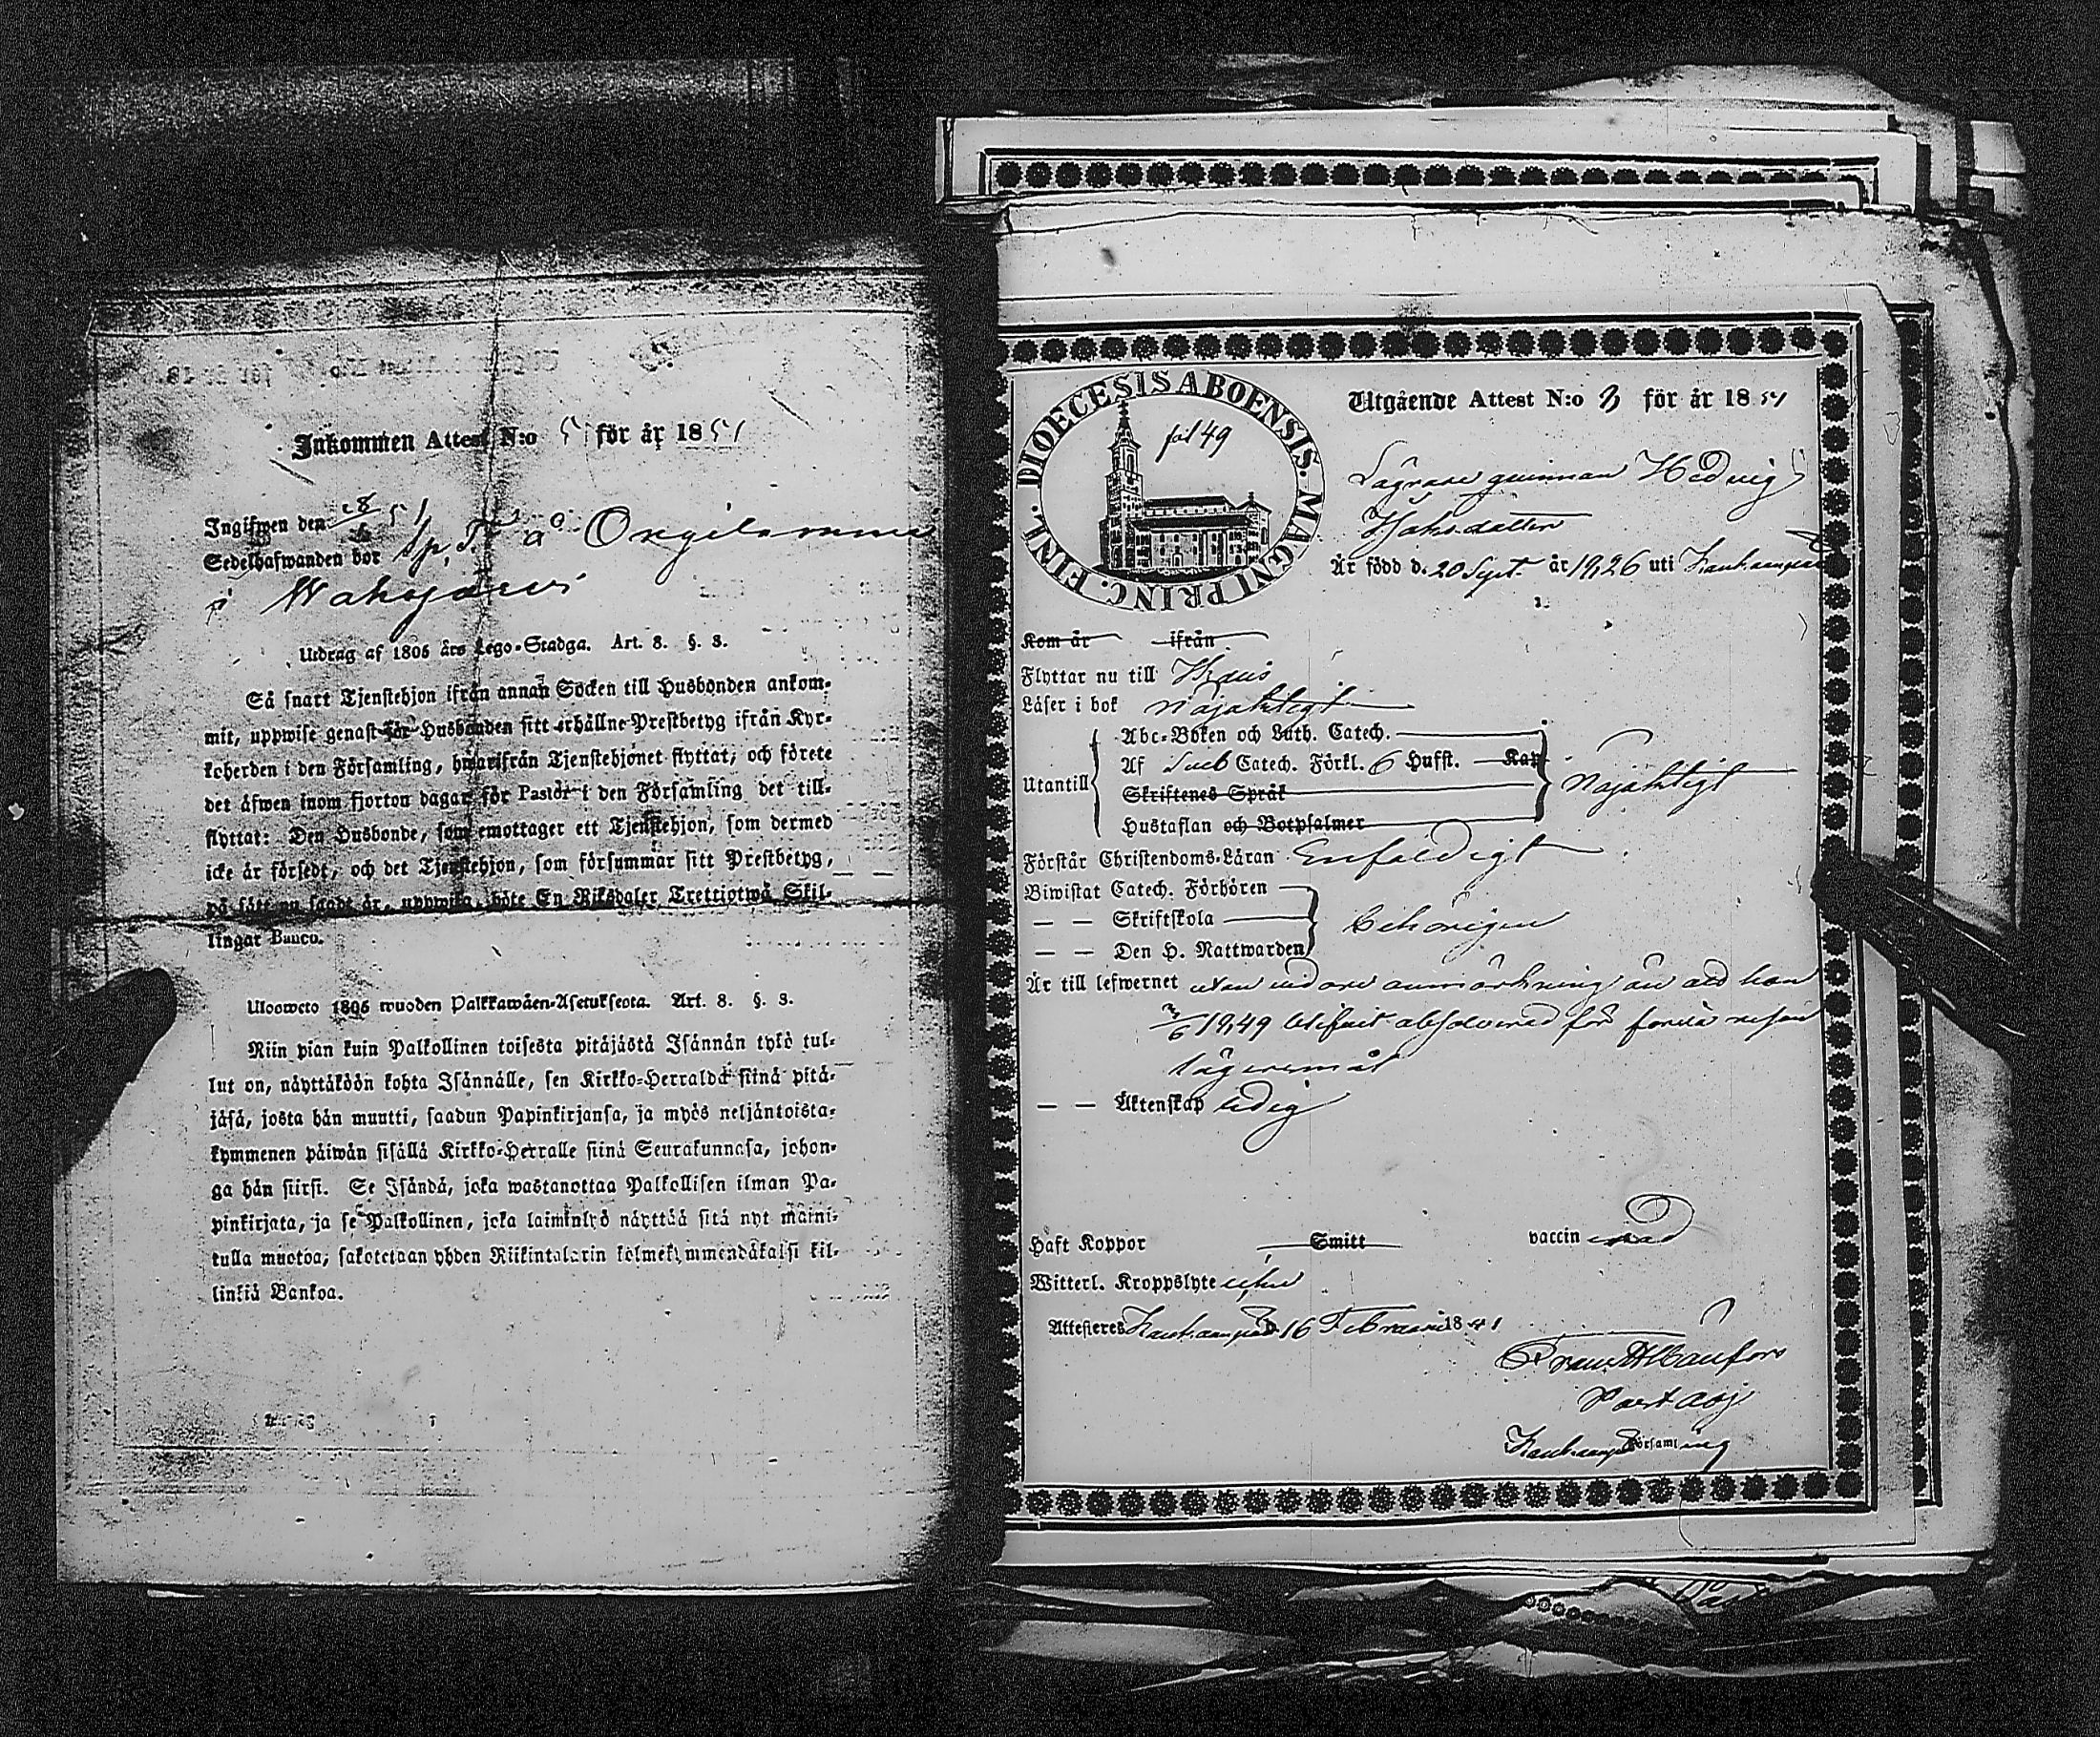 Inkommen Attest N:o 5 för år 1851
Ingifwen den 28/6 51
Sedelhafwanden bor Sp, T. å
i Wahojärwi
Utdrag af 1805 års Lego-Stadga. Art. 8. §. 3.
Så snart Tjenstehjon ifrån annan Socken till Husbonden ankom-
mit, uppwise genast för Husbonden sitt erhållne Prestbetyg ifrån Kyr-
koherden i den Församling, hwarifrån Tjenstehjonet flyttat, och förete
det äfwen inom fjorton dagar för Pastor i den Församling det till-
flyttat: Den Husbonde, som emottager ett Tjenstehjon, som dermed
icke är försedt, och det Tjenstehjon, som försummar sitt Prestbetyg,
på sätt nu sagdt är, uppwisa, böte En Riksdaler Trettiotwå Skil-
lingar Banco.
Ulosweto 1805 wuoden Palkkawäen-Asetuksesta. Art. 8. §. 3.
Niin pian kuin Palkollinen toisesta pitäjästä Isännän tykö tul-
lut on, näyttäköön kohta Isännälle, sen Kirkko-Herralda siinä pitä-
jäsä, josta hän muutti, saadun Papinkirjansa, ja myös neljäntoista-
kymmenen päiwän sisällä Kirkko-Herralle siinä Seurakunnasa, johon-
ga hän siirsi. Se Isändä, joka wastanottaa Palkollisen ilman Pa-
pinkirjata, ja se Palkollinen, joka laiminlyö näyttää sitä nyt maini-
tulla muotoa, sakotetaan yhden Riikintalarin kolmekymmendäkaksi kil-
linkiä Bankoa.
DIOECESIS ABOENSIS. MAGNI PRINC. FINL.
fol 49
Utgående Attest N:o 3 för år 1851
Lägrade qwinnan Hedvig
Är född d. 20 Sept. år 1826 uti Kauhanpää
Kom år ifrån
Flyttar nu till
Läser i bok Nöjaktigt
Utantill
Abc-Boken och Luth. Catech.
Af Sveb Catech. Förkl. 6 Hufst. Kap
Skriftenes Språk
Hustaflan och Botpsalmer
Nöjaktigt
Förstår Christendoms-Läran Enfaldigt
Biwistat Catech. Förhören
— — Skriftskola
— — Den H. Nattwarden
behörigen
Är till lefwernet utan widare anmärkning än att hon
1849 blifwit absolverad för första resan
lägersmål
— — Äktenskap ledig
Haft Koppor Smitt vaccinerad
Witterl. Kroppslyte utan
Attesteres Kauhanpää d. 16 Februarii 1851
Past adj.
Församling